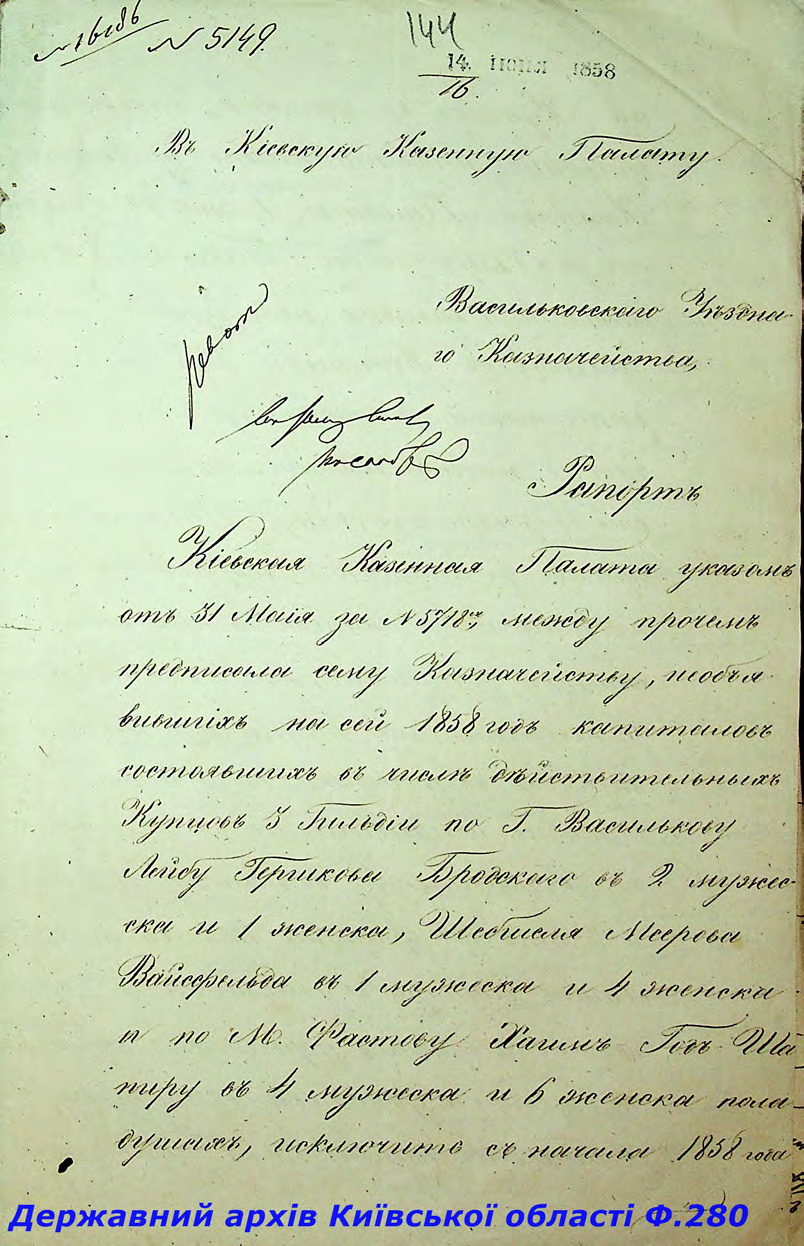 № 16186 № 5149. 144
14. ІЮНЯ 1858
16.
Въ Кіевскую Казенную Палату.
Васильковскаго Уѣздна-
го Казначейства,
Рапортъ
Кіевская Казенная Палата указомъ
отъ 31 Маія за № 5718, между прочемъ
предписала сему Казначейству, необъя-
вившихъ на сей 1858 годъ капиталовъ
состоявшихъ въ числѣ дѣйствительныхъ
Купцовъ 3 Гильдіи по Г. Василькову
Лейбу Гершкова Бродскаго въ 2 мужес-
ска и 1 женска, Меерова
Вайсфельда въ 1 мужеска и 4 женска
и по М. Фастову Хаимъ Ша-
пиру въ 4 мужеска и 6 женска пола
душахъ, исключить съ начала 1858 года
Державний архів Київської області Ф.280